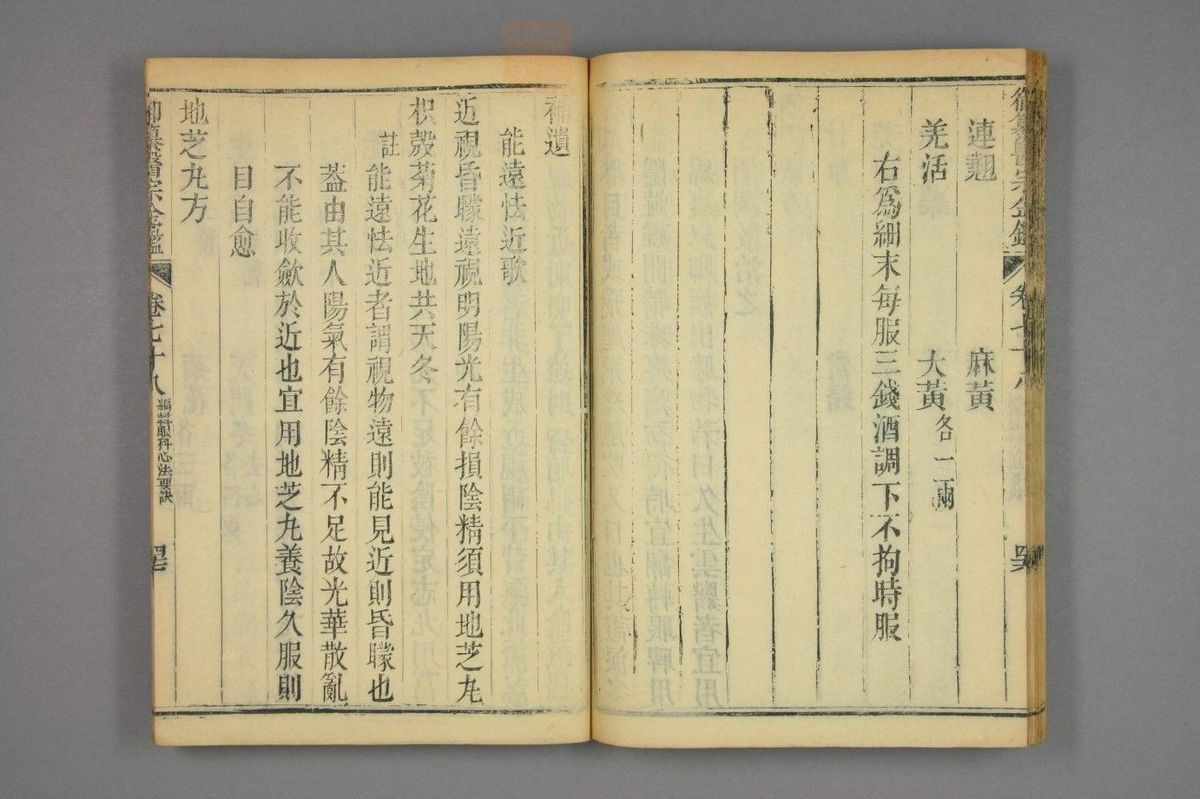 連翹　麻黃
羌活　大黃各二兩
右爲細末每服三錢酒調下不拘時服
補遺
能遠怯近歌
近視昏矇遠視明陽光有餘損陰精須用地芝丸
枳殼菊花生地共天冬
註能遠怯近者謂視物遠則能見近則昏矇也
蓋由其人陽氣有餘陰精不足故光華散亂
不能收歛於近也宜用地芝丸養陰久服則
目自愈
地芝丸方
御纂醫宗金鑑　卷七十八　編輯眼科心法要訣